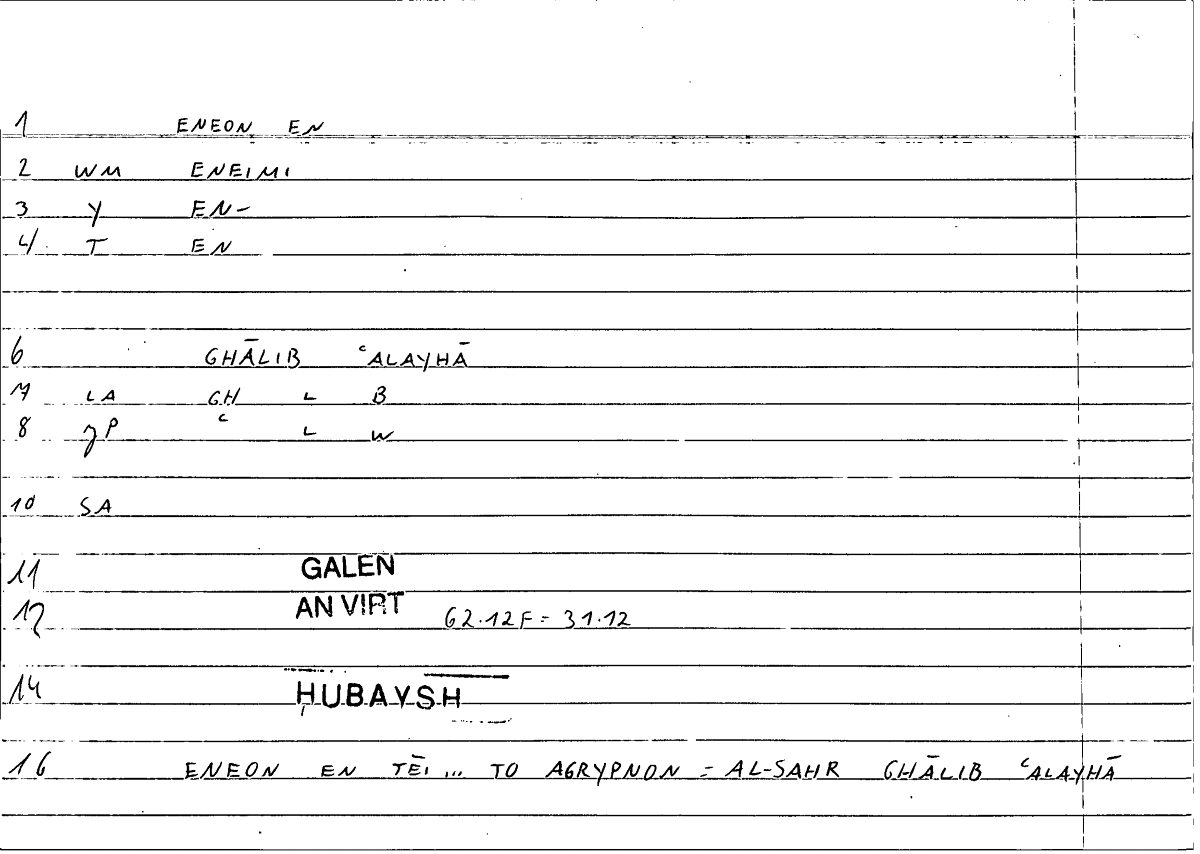 1 ENEON EN
2 WM ENEIMI
3 Y EN-
4 T EN
6 GHĀLIB ʿALAYHĀ
7 LA GH L B
8 JP ʿ L W
10 SA
11 GALEN
12 AN VIRT 62.12F = 31.12
14 HUBAYSH
16 ENEON EN TĒI ... TO AGRYPNON = AL-SAHR GHĀLIB ʿALAYHĀ